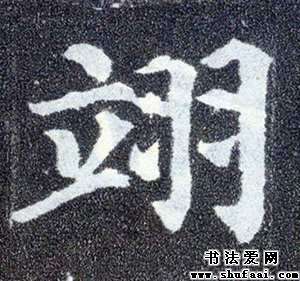 翊
书法爱网
www.shufaai.com